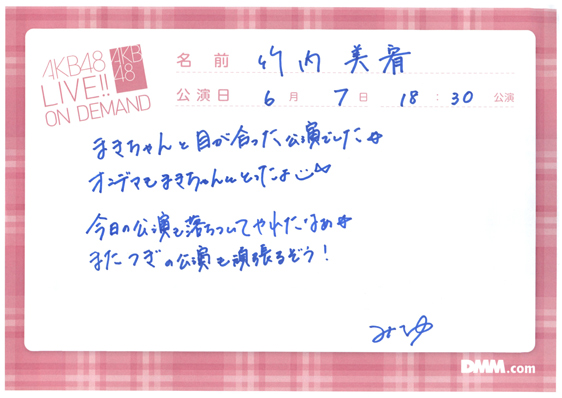 AKB48
LIVE!!
ON DEMAND
AKB
48
名前 竹内美宥
公演日 6月 7日 18:30 公演
まきちゃんと目が合った公演でした☆
オンデマもまきちゃんととったよ
今日の公演も落ちついてやれたなぁ☆
またつぎの公演も頑張るぞう!
みゆ
DMM.com